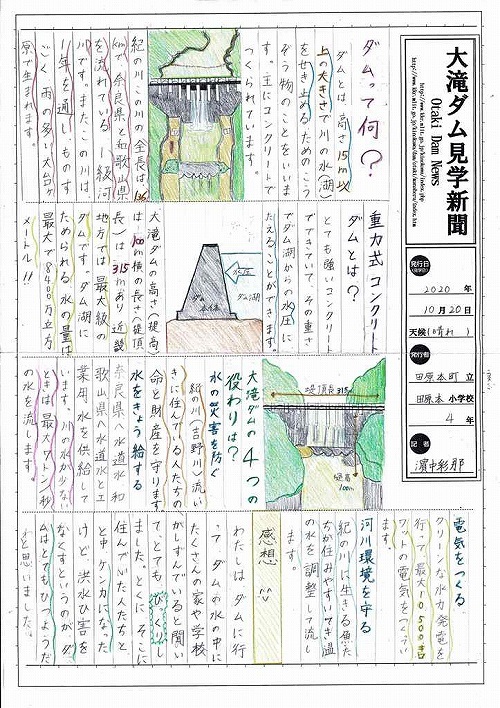 大滝ダム見学新聞
Otaki Dam News
発行日
2020年
10月20日
天候(晴れ)
発行者
田原本町立
田原本小学校
4年
記者
ダムって何?
ダムとは、高さ15m以
上の大きさで川の水(湖)
をせき止めるためのこう
ぞう物のことをいいま
す。主にコンクリートで
つくられています。
紀の川この川の全長は136
kmで奈良県と和歌山県
を流れている一級河
川です。また、この川は
1年を通しものす
ごく雨の多い大台ヶ
原で生まれます。
重力式コンクリート
ダムとは?
とても強いコンクリート
でできていて、その重さ
でダム湖からの水圧に
たえることができます。
水圧
ダム湖
ダム
本体
大滝ダムの高さ(提高)
は100m横の長さ(提頂
長)は315mあり近畿
地方では最大級の
ダムです。ダム湖に
ためられる水の量は
最大で8400万立方
メートル!!
堤頂長315m
堤高
100m
大滝ダムの4つの
役わりは?
水の災害を防ぐ
紀の川(吉野川)流い
きに住んでいる人たちの
命と財産を守ります。
水をきょう給する
奈良県へ水道水和
歌山県へ水道水と工
業用水を供給して
います。川の水が少ない
ときは最大7トン/秒
の水を流します。
電気をつくる
クリーンな水力発電を
行って、最大10500キロ
ワットの電気をつくってい
ます。
河川環境を守る
紀の川に生きる魚た
ちが住みやすいてき温
の水を調整して流し
ます。
感想
わたしはダムに行
って、ダムの水の中に
たくさんの家や学校
がしずんでいると聞い
てとてもびっくりし
ました。とくにそこに
住んでいた人たちと
と中ケンカになった
けど洪水ひ害を
なくすというのがダ
ムはとてもひつようだ
なと思いました。